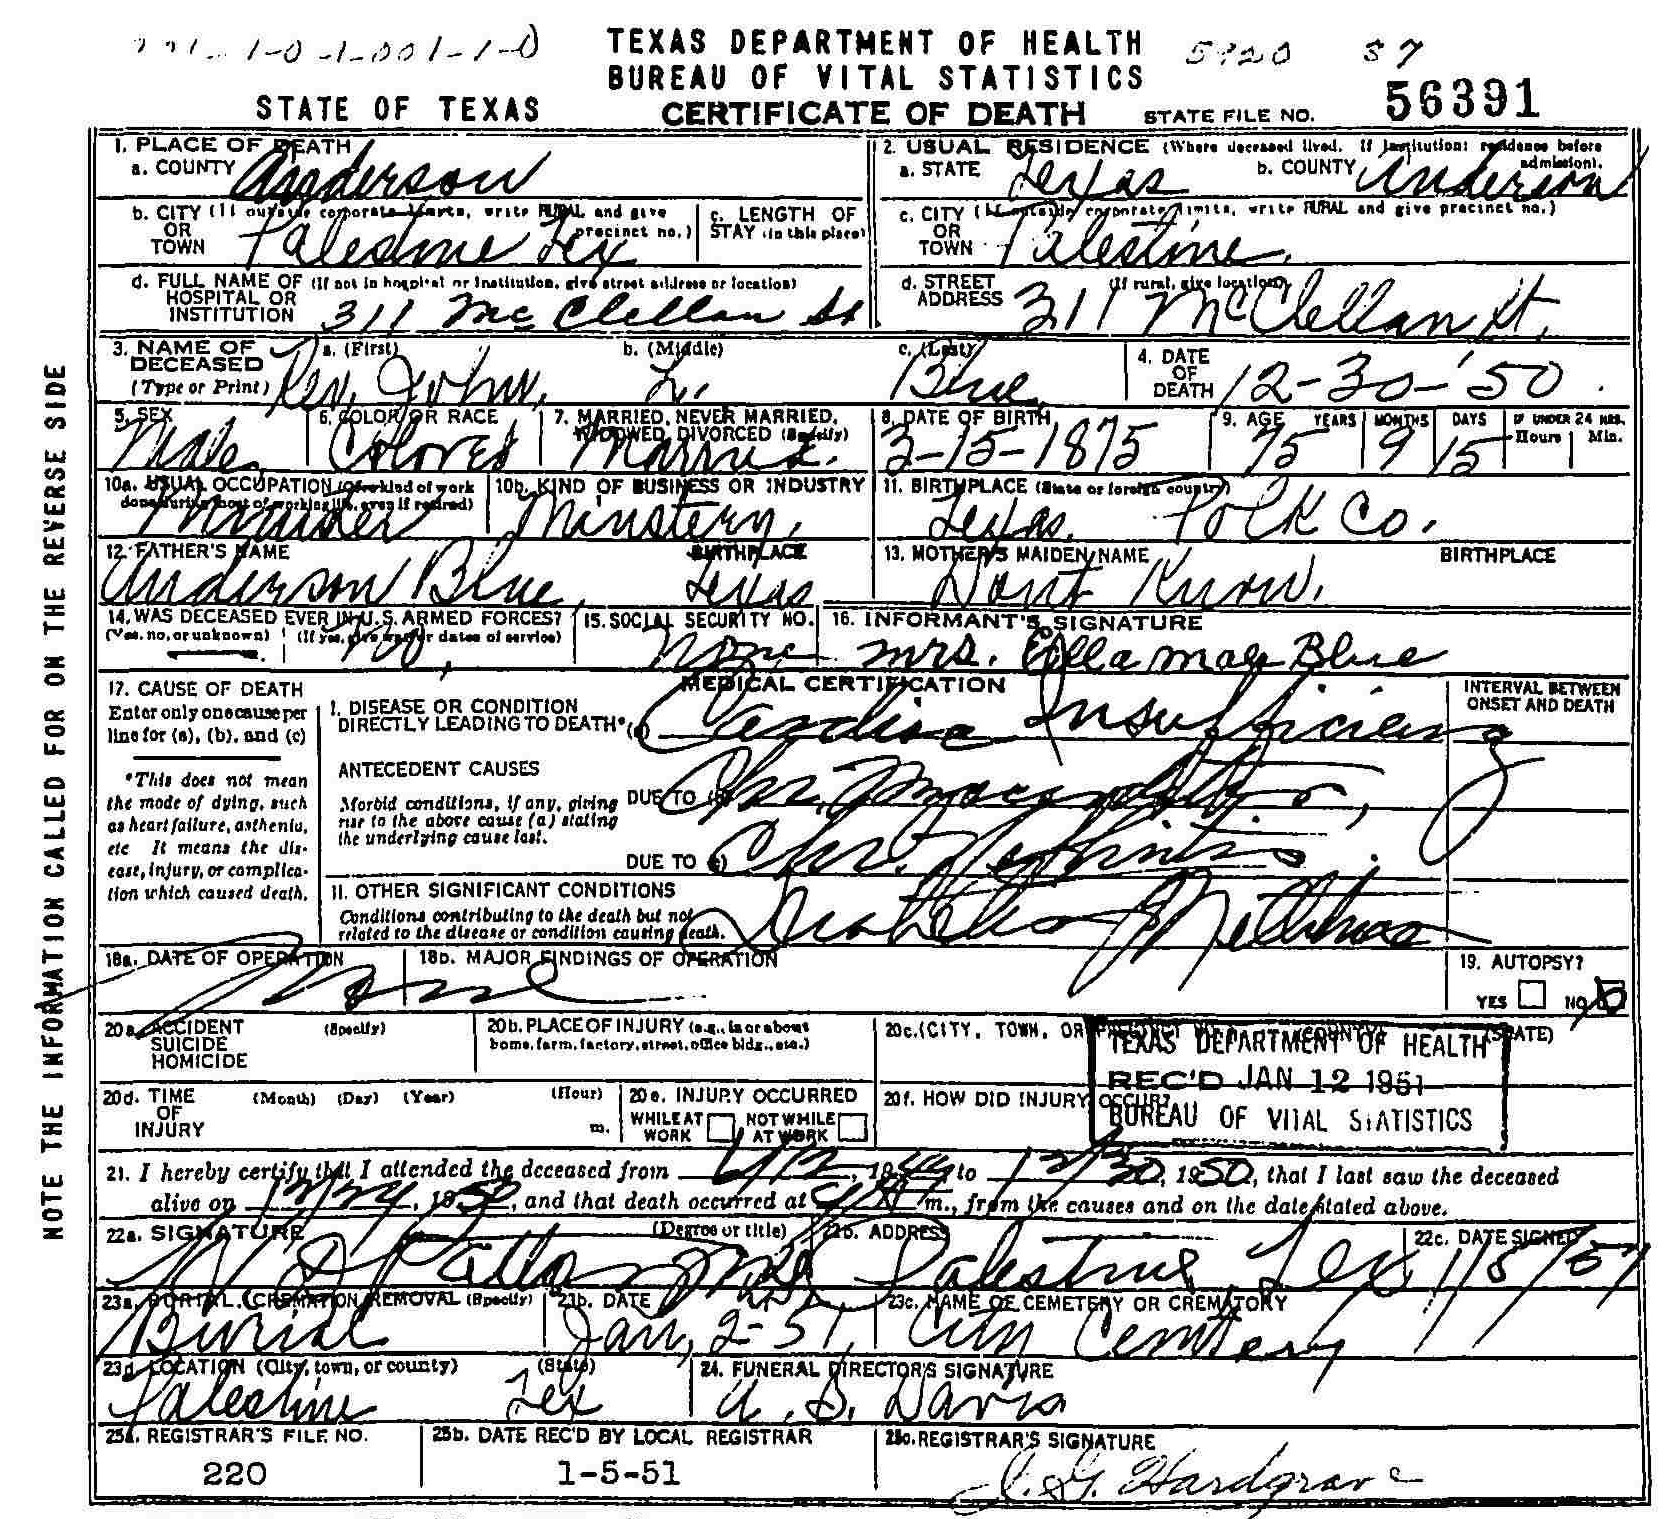 TEXAS DEPARTMENT OF HEALTH
BUREAU OF VITAL STATISTICS
5920 57
STATE OF TEXAS CERTIFICATE OF DEATH STATE FILE NO. 56391
NOTE THE INFORMATION CALLED FOR ON THE REVERSE SIDE
1. PLACE OF DEATH
a. COUNTY Anderson
2. USUAL RESIDENCE (Where deceased lived. If institution: residence before admission).
a. STATE Texas b. COUNTY Anderson
b. CITY (If outside corporate limits, write RURAL and give precinct no.) OR TOWN Palestine Tex
c. LENGTH OF STAY (in this place)
c. CITY (If outside corporate limits, write RURAL and give precinct no.) OR TOWN Palestine.
d. FULL NAME OF HOSPITAL OR INSTITUTION (If not in hospital or institution, give street address or location) 311 McClellan St.
d. STREET ADDRESS (If rural, give location) 311 McClellan St.
3. NAME OF DECEASED (Type or Print) a. (First) Rev. John. b. (Middle) L. c. (Last) Blue
4. DATE OF DEATH 12-30-'50.
5. SEX Male.
6. COLOR OR RACE Colored
7. MARRIED, NEVER MARRIED, WIDOWED, DIVORCED (Specify) Married.
8. DATE OF BIRTH 3-15-1875
9. AGE YEARS 75 MONTHS 9 DAYS 15 IF UNDER 24 HRS. Hours Min.
10a. USUAL OCCUPATION (Give kind of work done during most of working life, even if retired) Minister
10b. KIND OF BUSINESS OR INDUSTRY Minstery.
11. BIRTHPLACE (State or foreign country) Texas. Polk Co.
12. FATHER'S NAME Anderson Blue, BIRTHPLACE Texas
13. MOTHER'S MAIDEN NAME Dont Know. BIRTHPLACE
14. WAS DECEASED EVER IN U.S. ARMED FORCES? (Yes, no, or unknown) (If yes, give war or dates of service) No,
15. SOCIAL SECURITY NO. None
16. INFORMANT'S SIGNATURE mrs. Ella mae Blue
17. CAUSE OF DEATH
Enter only one cause per line for (a), (b), and (c)
*This does not mean the mode of dying, such as heart failure, asthenia, etc It means the disease, injury, or complication which caused death.
MEDICAL CERTIFICATION
INTERVAL BETWEEN ONSET AND DEATH
I. DISEASE OR CONDITION DIRECTLY LEADING TO DEATH* (a) Cardiac Insufficiency
ANTECEDENT CAUSES
Morbid conditions, if any, giving rise to the above cause (a) stating the underlying cause last.
DUE TO (b) Chr. Myocarditis,
DUE TO (c) Chr. Nephritis.
II. OTHER SIGNIFICANT CONDITIONS
Conditions contributing to the death but not related to the disease or condition causing death. Diabetes Mellitus
18a. DATE OF OPERATION None
18b. MAJOR FINDINGS OF OPERATION
19. AUTOPSY? YES NO
20a. ACCIDENT SUICIDE HOMICIDE (Specify)
20b. PLACE OF INJURY (e.g., in or about home, farm, factory, street, office bldg., etc.)
20c. (CITY, TOWN, OR PRECINCT NO.) (COUNTY) (STATE)
TEXAS DEPARTMENT OF HEALTH
REC'D JAN 12 1951
BUREAU OF VITAL STATISTICS
20d. TIME OF INJURY (Month) (Day) (Year) (Hour) m.
20e. INJURY OCCURRED WHILE AT WORK NOT WHILE AT WORK
20f. HOW DID INJURY OCCUR?
21. I hereby certify that I attended the deceased from 1949 to 12/30, 1950, that I last saw the deceased
alive on 12/24, 1950, and that death occurred at m., from the causes and on the date stated above.
22a. SIGNATURE (Degree or title)
22b. ADDRESS Palestine, Tex
22c. DATE SIGNED 1/5/51
23a. BURIAL, CREMATION, REMOVAL (Specify) Burial
23b. DATE Jan, 2-51,
23c. NAME OF CEMETERY OR CREMATORY City Cemtery
23d. LOCATION (City, town, or county) (State) Palestine Tex
24. FUNERAL DIRECTOR'S SIGNATURE A. S. Davis
25a. REGISTRAR'S FILE NO. 220
25b. DATE REC'D BY LOCAL REGISTRAR 1-5-51
25c. REGISTRAR'S SIGNATURE J. G. Hardgrave